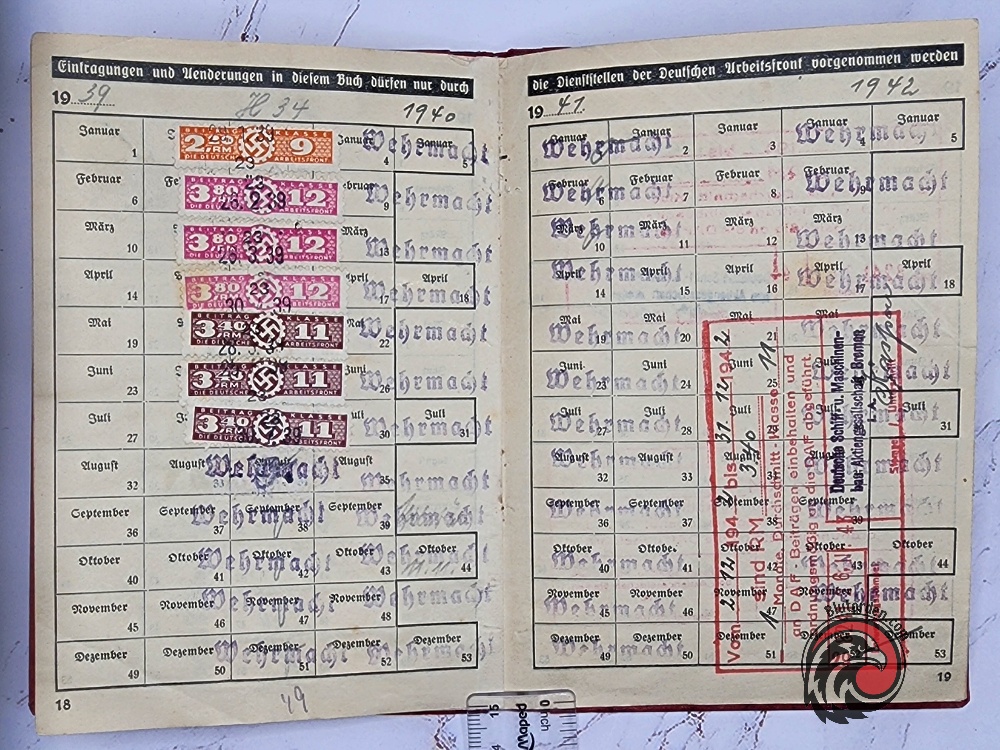 Eintragungen und Aenderungen in diesem Buch dürfen nur durch
19 39 H 34 1940
Januar 1 Januar 4 Januar 5
BEITRAG KLASSE
2 25 RM 9
DIE DEUTSCHE ARBEITSFRONT
Wehrmacht
Februar 6 9
3 80 RM 12
23. 2. 39
Wehrmacht
März 10 13
3 80 RM 12
3. 39
DIE DEUTSCHE ARBEITSFRONT
Wehrmacht
April 14 April 17 April 18
BEITRAG KLASSE
3 80 RM 12
DIE DEUTSCHE ARBEITSFRONT
30 39
Wehrmacht
Mai 19 Mai 22
BEITRAG KLASSE
3 40 RM 11
DIE DEUTSCHE ARBEITSFRONT
Wehrmacht
Juni 23 26
BEITRAG KLASSE
3 40 RM 11
DIE DEUTSCHE ARBEITSFRONT
Wehrmacht
Juli 27 Juli 30 Juli 31
BEITRAG KLASSE
3 40 RM 11
DIE DEUTSCHE ARBEITSFRONT
Wehrmacht
August 32 August 33 August August 35
Wehrmacht Wehrmacht
September 36 September 37 September 38 September 39
Wehrmacht Wehrmacht
Oktober 40 Oktober 41 Oktober 42 Oktober 43 Oktober 44
Wehrmacht Wehrmacht
November 45 November 46 November 47 November 48
Wehrmacht Wehrmacht
Dezember 49 Dezember 50 Dezember 51 Dezember 52 Dezember 53
Wehrmacht Wehrmacht
18
49
die Dienststellen der Deutschen Arbeitsfront vorgenommen werden
19 41. 1942
Januar Januar 2 Januar 3 Januar 4 Januar 5
Wehrmacht Wehrmacht
Februar 6 Februar 7 Februar 8 9
Wehrmacht Wehrmacht
März 10 März 11 März 12 März 13
Wehrmacht Wehrmacht
April 14 April 15 April 16 April 17 April 18
Wehrmacht Wehrmacht
Mai 19 Mai 20 Mai 21 Mai
Wehrmacht
Juni 23 Juni 24 Juni 25 Juni
Wehrmacht
Juli 27 Juli 28 Juli Juli Juli 31
Wehrmacht
August 32 August 33 August August
Wehrmacht
September 36 September 37 September 38 September 39
Wehrmacht
Oktober 40 Oktober 41 Oktober Oktober 43 Oktober 44
Wehrmacht
November 45 November 46 November 47 November
Wehrmacht Wehrmacht
Dezember 49 Dezember 50 Dezember 51 Dezember 53
Wehrmacht
Vom 2.12.1942 bis 31.12.1942
sind RM 3,40
1 Monate, Durchschnitt-Klasse 11
an DAF-Beiträgen einbehalten und
ordnungsmäßig an die DAF abgeführt.
Deutsche Schiff- u. Maschinen-
bau Aktiengesellschaft Bremen
19
Blutorden.com
15
Maped
0 inch